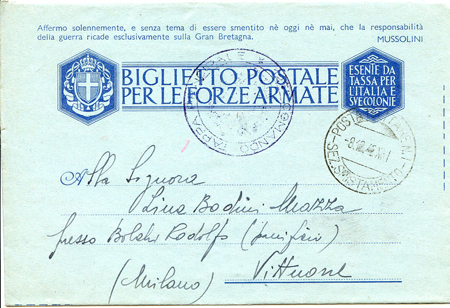 Affermo solennemente, e senza tema di essere smentito nè oggi nè mai, che la responsabilità
della guerra ricade esclusivamente sulla Gran Bretagna. MUSSOLINI
BIGLIETTO POSTALE
PER LE FORZE ARMATE
ESENTE DA
TASSA PER
L'ITALIA E
SVE COLONIE
COMANDO TAPPA
POSTA
-8.12.42.XXI
Alla Signora
Lina Bodini Mazza
presso Rodolfo
(Milano) Vittuone